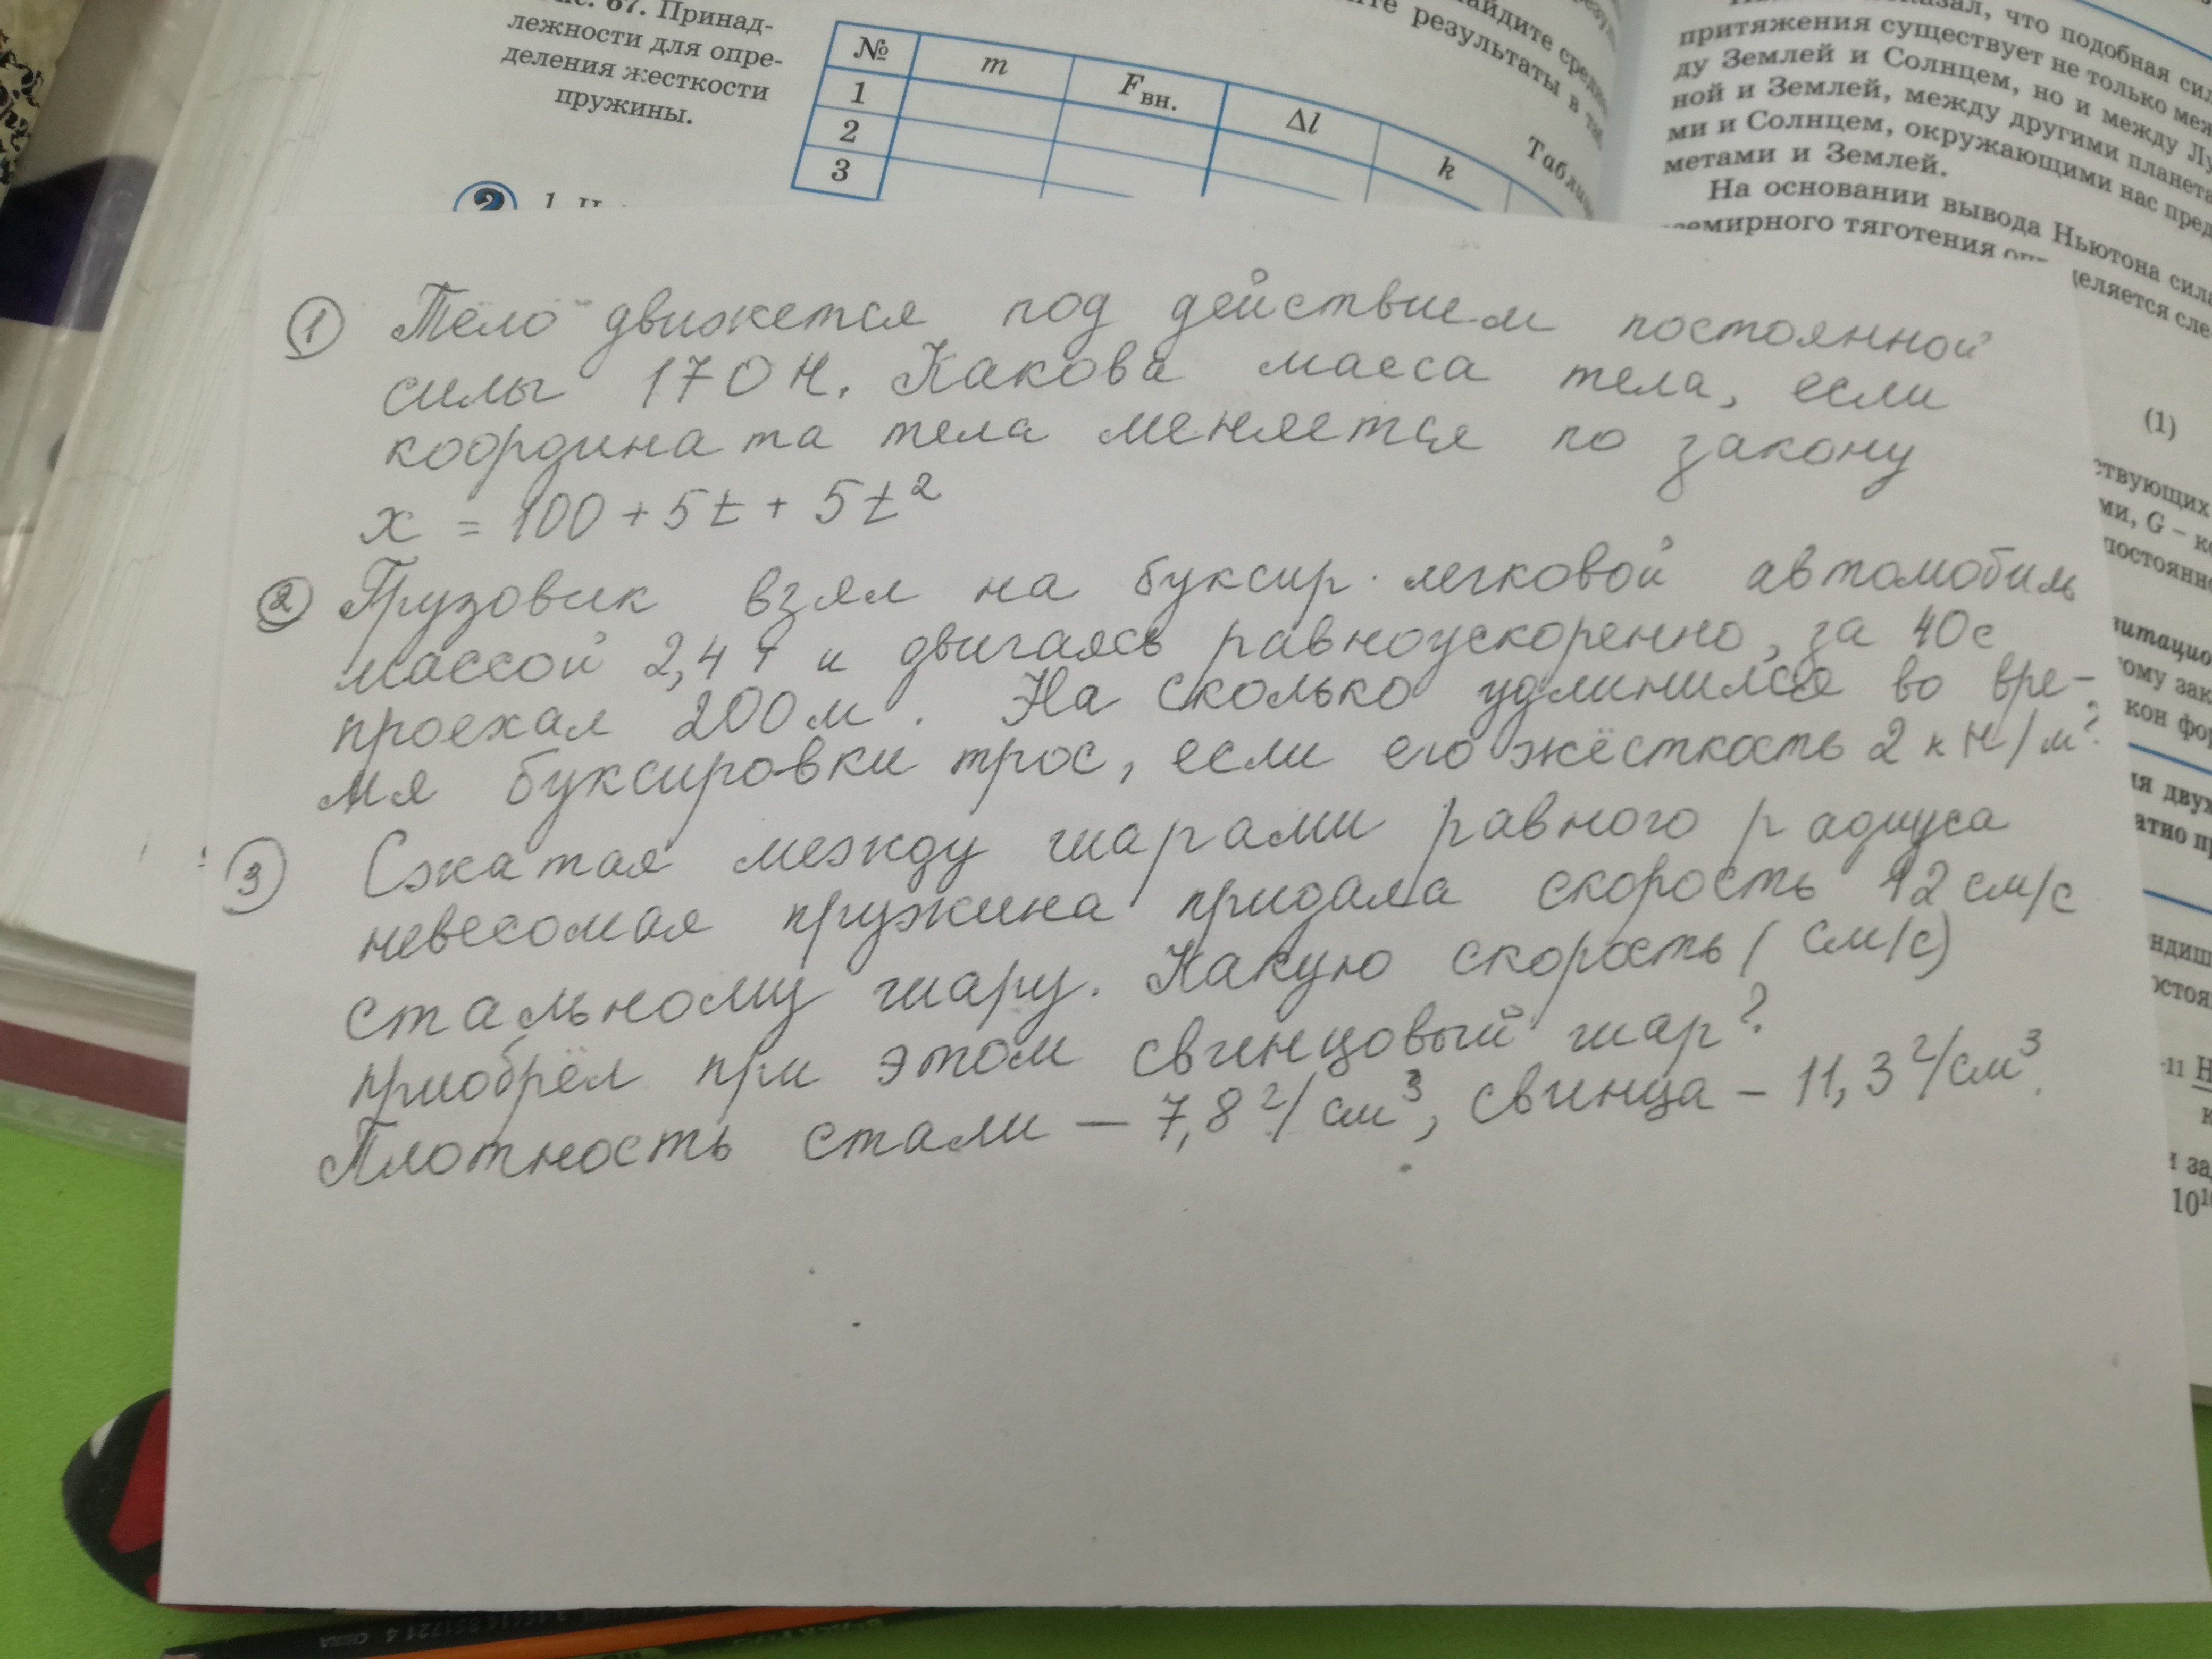 67. Принад-
лежности для опре-
деления жесткости
пружины.
№ m Fвн. Δl k
1
2
3
найдите
результаты в
что подобная
притяжения существует не только
ду Землей и Солнцем, но и между
ной и Землей, между другими
ми и Солнцем, окружающими нас
метами и Землей.
На основании вывода Ньютона
тяготения
(1)
G –
2 1.
① Тело движется под действием постоянной
силы 170 Н. Какова масса тела, если
координата тела меняется по закону
x = 100 + 5t + 5t²
② Грузовик взял на буксир легковой автомобиль
массой 2,4 т и двигаясь равноускоренно, за 40с
проехал 200м. На сколько удлинился во вре-
мя буксировки трос, если его жёсткость 2 кН/м?
③ Сжатая между шарами равного радиуса
невесомая пружина придала скорость 12 см/с
стальному шару. Какую скорость (см/с)
приобрёл при этом свинцовый шар?
Плотность стали – 7,8 г/см³, свинца – 11,3 г/см³.